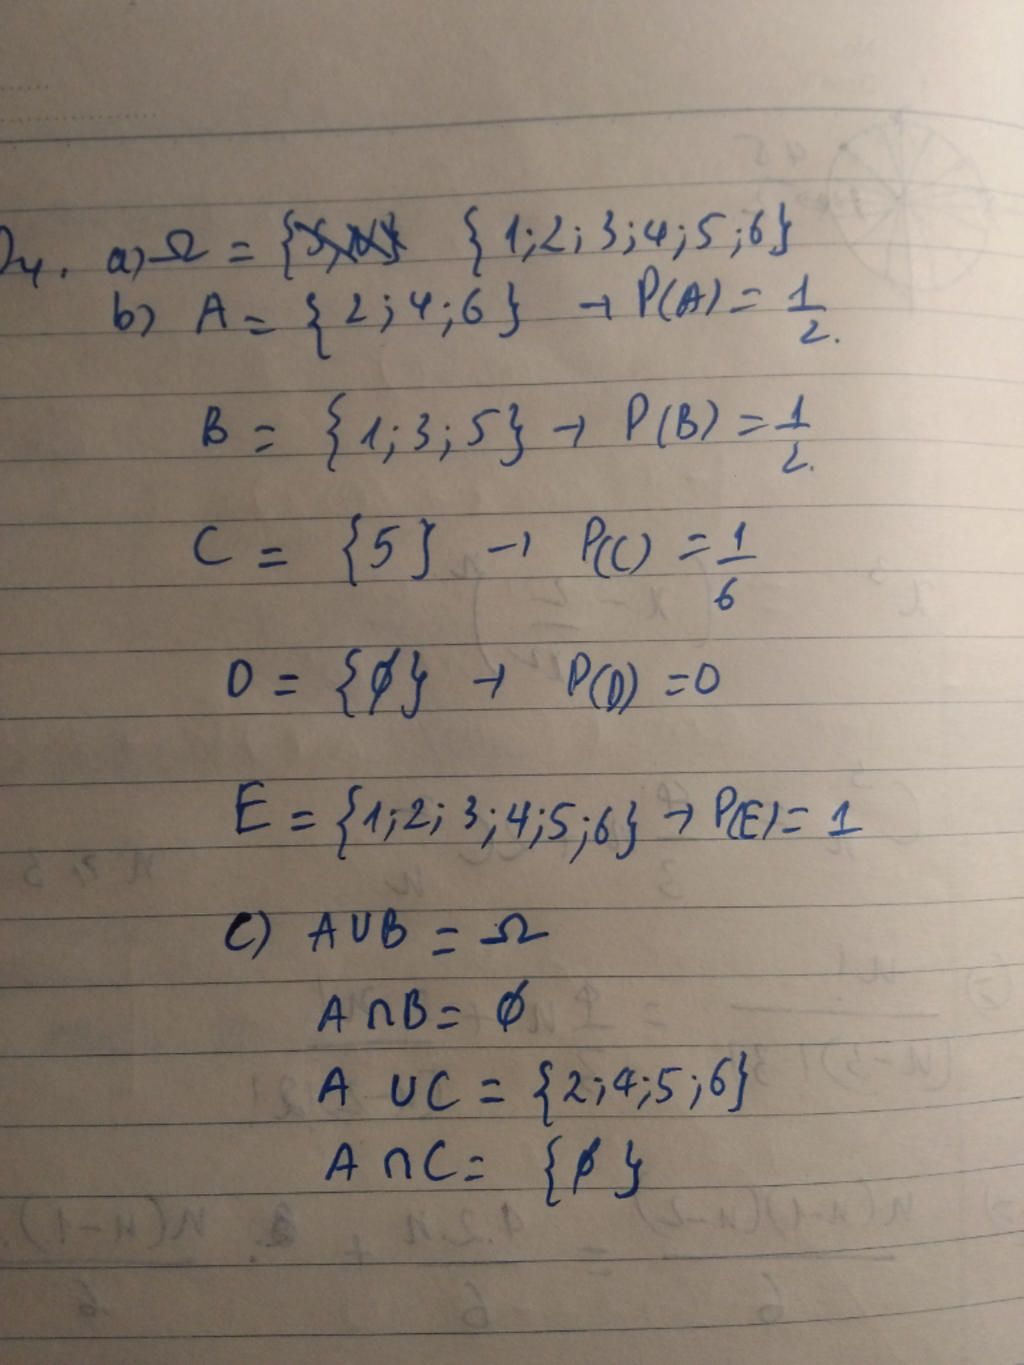 a) Ω = { 1;2;3;4;5;6}
b) A = {2;4;6} → P(A) = 1/2.
B = {1;3;5} → P(B) = 1/2.
C = {5} → P(C) = 1/6
D = {∅} → P(D) = 0
E = {1;2;3;4;5;6} → P(E) = 1
c) A∪B = Ω
A∩B = ∅
A ∪C = {2;4;5;6}
A ∩C = {∅}